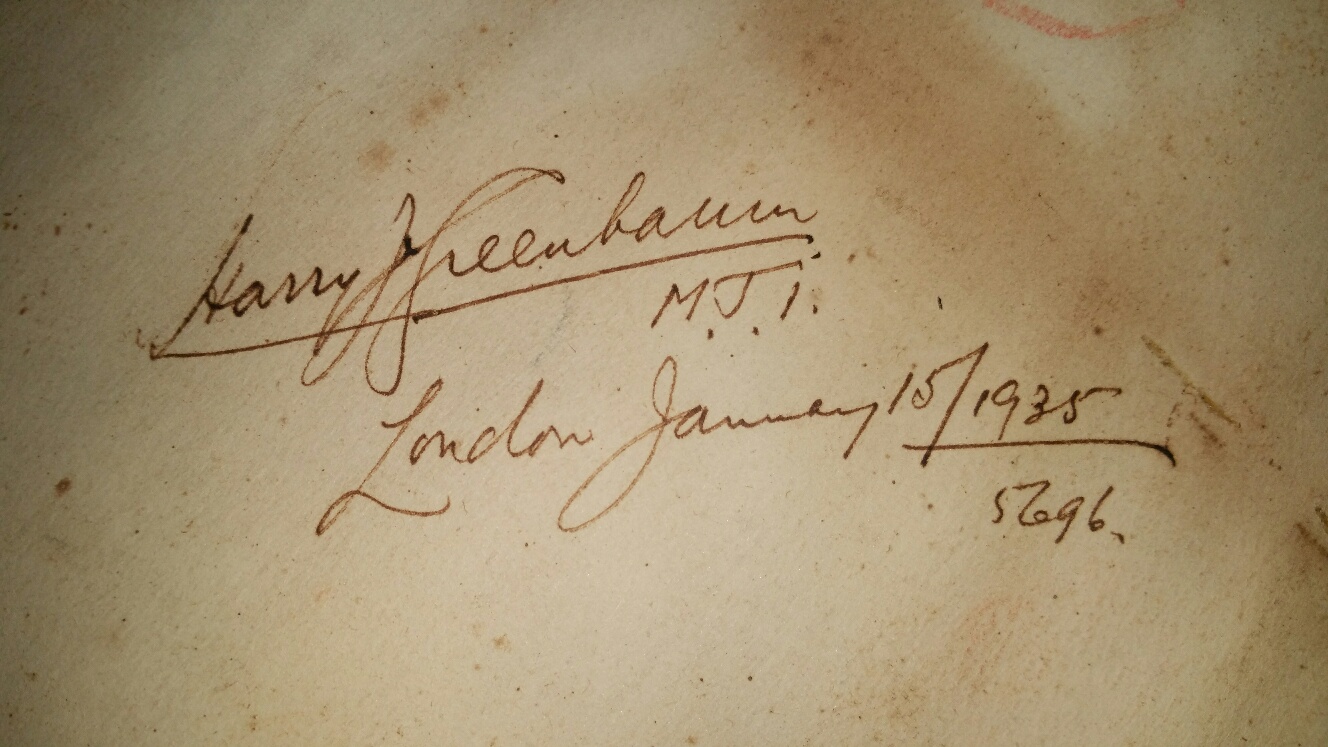 Harry J Greenbaum
M.J.I.
London January 15/1935
5696.